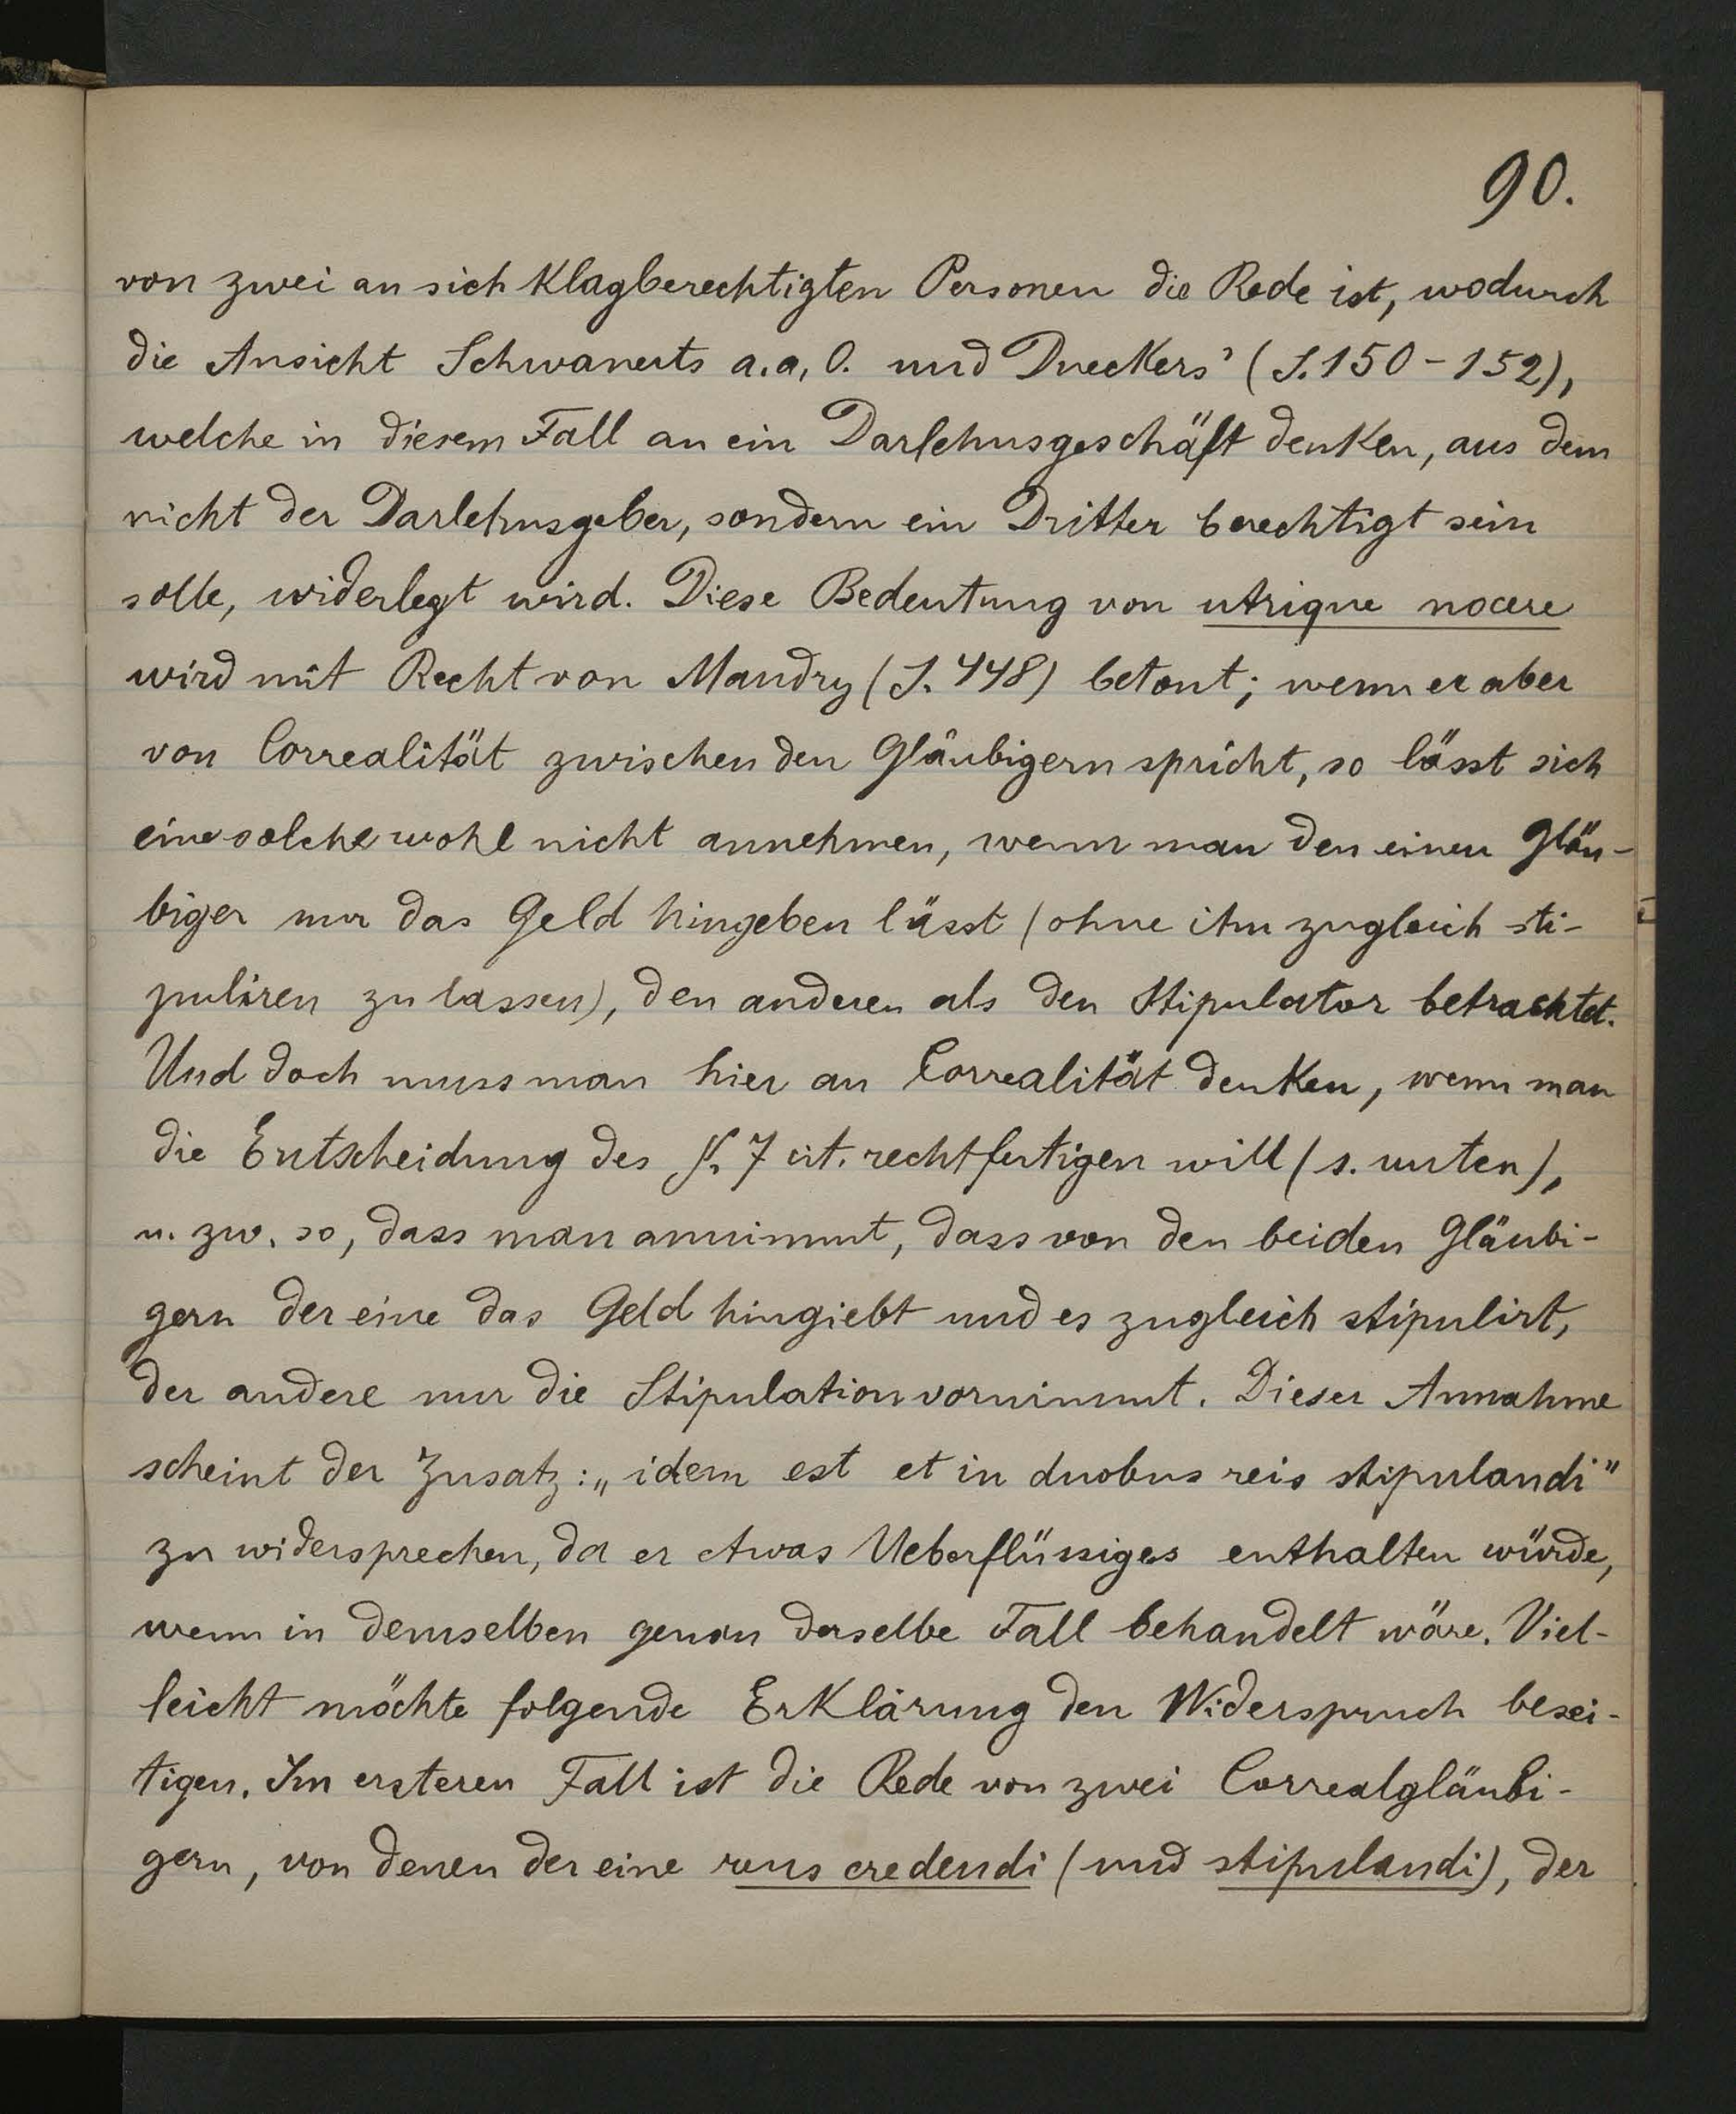 90.
von zwei an sich klagberechtigten Personen die Rede ist, wodurch
die Ansicht Schwanerts a. a. O. und Dueckers' (S. 150 - 152),
welche in diesem Fall an ein Darlehnsgeschäft denken, aus dem
nicht der Darlehnsgeber, sondern ein Dritter berechtigt sein
solle, widerlegt wird. Diese Bedeutung von utrique nocere
wird mit Recht von Mandry (S. 448) betont; wenn er aber
von Correalität zwischen den Gläubigern spricht, so lässt sich
eine solche wohl nicht annehmen, wenn man den einen Gläu-
biger nur das Geld hingeben lässt (ohne ihn zugleich sti-
puliren zu lassen), den anderen als den Stipulator betrachtet.
Und doch muss man hier an Correalität denken, wenn man
die Entscheidung des §. 7 cit. rechtfertigen will (s. unten),
u. zw. so, dass man annimmt, dass von den beiden Gläubi-
gern der eine das Geld hingiebt und es zugleich stipulirt,
der andere nur die Stipulation vornimmt. Dieser Annahme
scheint der Zusatz: „idem est et in duobus reis stipulandi"
zu widersprechen, da er etwas Ueberflüssiges enthalten würde,
wenn in demselben genau derselbe Fall behandelt wäre. Viel-
leicht möchte folgende Erklärung den Widerspruch besei-
tigen. Im ersteren Fall ist die Rede von zwei Correalgläubi-
gern, von denen der eine reus credendi (und stipulandi), der